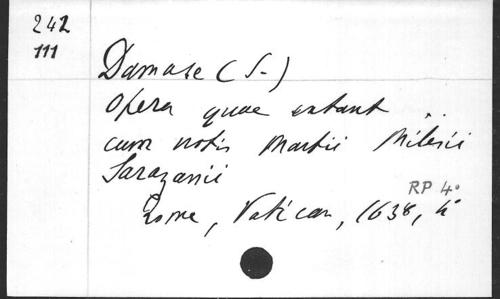 242
111
Damase (S-)
Opera quae extant
cum notis Martii Milesii
Sarazanii
RP 4°
Rome, Vatican, 1638, 4°